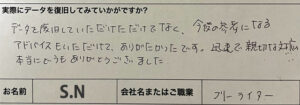 実際にデータを復旧してみていかがですか?
データを復旧していただけただけでなく、今後の参考になる
アドバイスもいただけて、ありがたかったです。迅速で親切な対応
本当にどうもありがとうございました。
お名前 S.N 会社名またはご職業 フリーライター